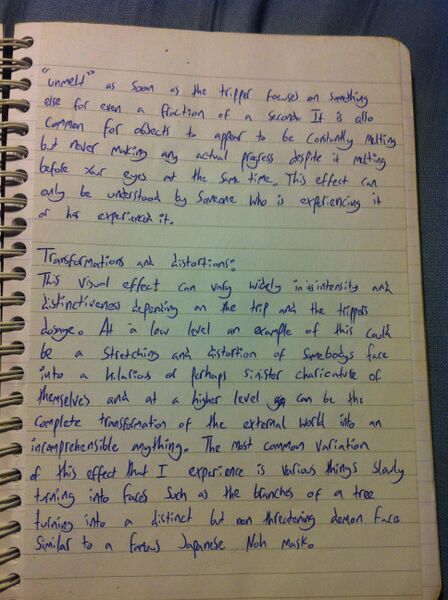 "unmelt" as soon as the tripper focuses on something
else for even a fraction of a second. It is also
common for objects to appear to be constantly melting
but never making any actual progress despite it melting
before your eyes at the same time. This effect can
only be understood by someone who is experiencing it
or has experienced it.
Transformations and distortions:
This visual effect can vary widely in its intensity and
distinctiveness depending on the trip and the trippers
dosage. At a low level an example of this could
be a stretching and distortion of somebodys face
into a hilarious or perhaps sinister charicature of
themselves and at a higher level can be the
complete transformation of the external world into an
incomprehensible anything. The most common variation
of this effect that I experience is various things slowly
turning into faces such as the branches of a tree
turning into a distinct but non threatening demon face
similar to a famous Japanese Noh Mask.